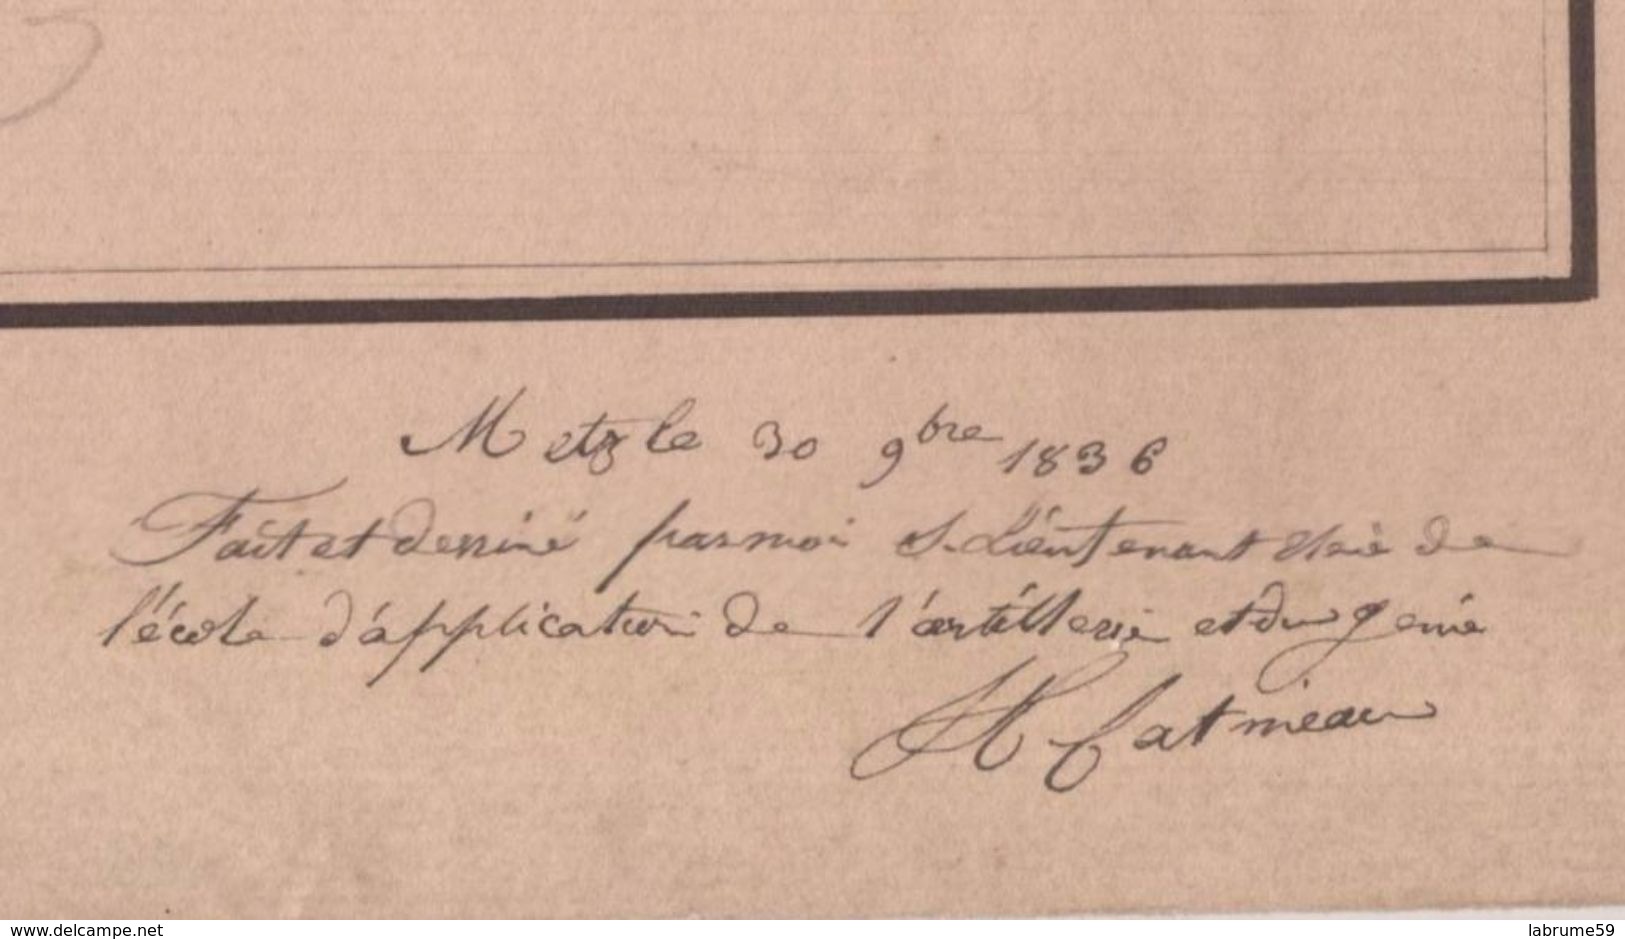 Metz le 30 9bre 1836
Fait et dessiné par moi S. Lieutenant Elève de
l'école d'application de l'artillerie et du génie
delcampe.net
labrume59